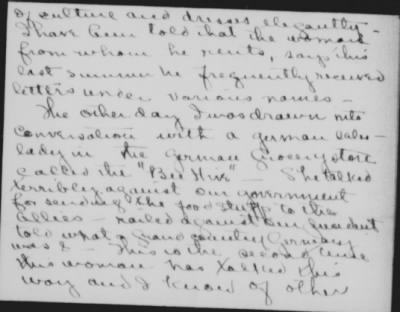 of culture and dresses elegantly -
I have been told that the woman
from whom he rents, says this
last summer he frequently received
letters under various names -
The other day I was drawn into
conversation with a german sales-
lady in the german Grocery store
called the "Bee Hive" - She talked
terribly against our government
for sending the food stuff to the
allies - railed against our President
told what a grand country Germany
was & - This is the second time
this woman has talked this
way and I know of other